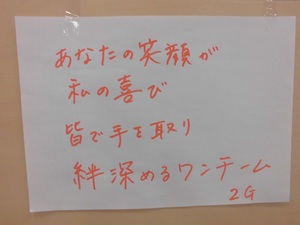 あなたの笑顔が
私の喜び
皆で手を取り
絆深めるワンチーム
2G